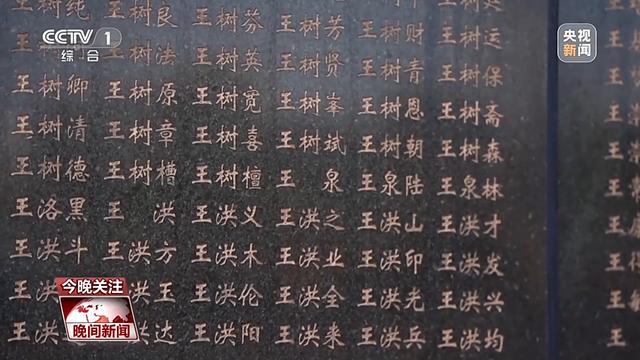 CCTV 1 央视
综合 新闻
王树纯 王树良 王树芬 王树芳 王树财 运
王树法 王树英 王树贤 王树青 保
王树卿 王树原 王树宽 王树峯 王树恩 王树斋
王树清 王树章 王树喜 王树斌 王树朝 王树森
王树德 王树槽 王树檀 王泉 王泉陆 王泉林
王洛黑 王洪 王洪义 王洪之 王洪山 王洪才
王洪斗 王洪方 王洪木 王洪业 王洪印 王洪发
王洪 玉 王洪伦 王洪全 王洪光 王洪兴
王洪 洪达 王洪阳 王洪来 王洪兵 王洪均
今晚关注
晚间新闻